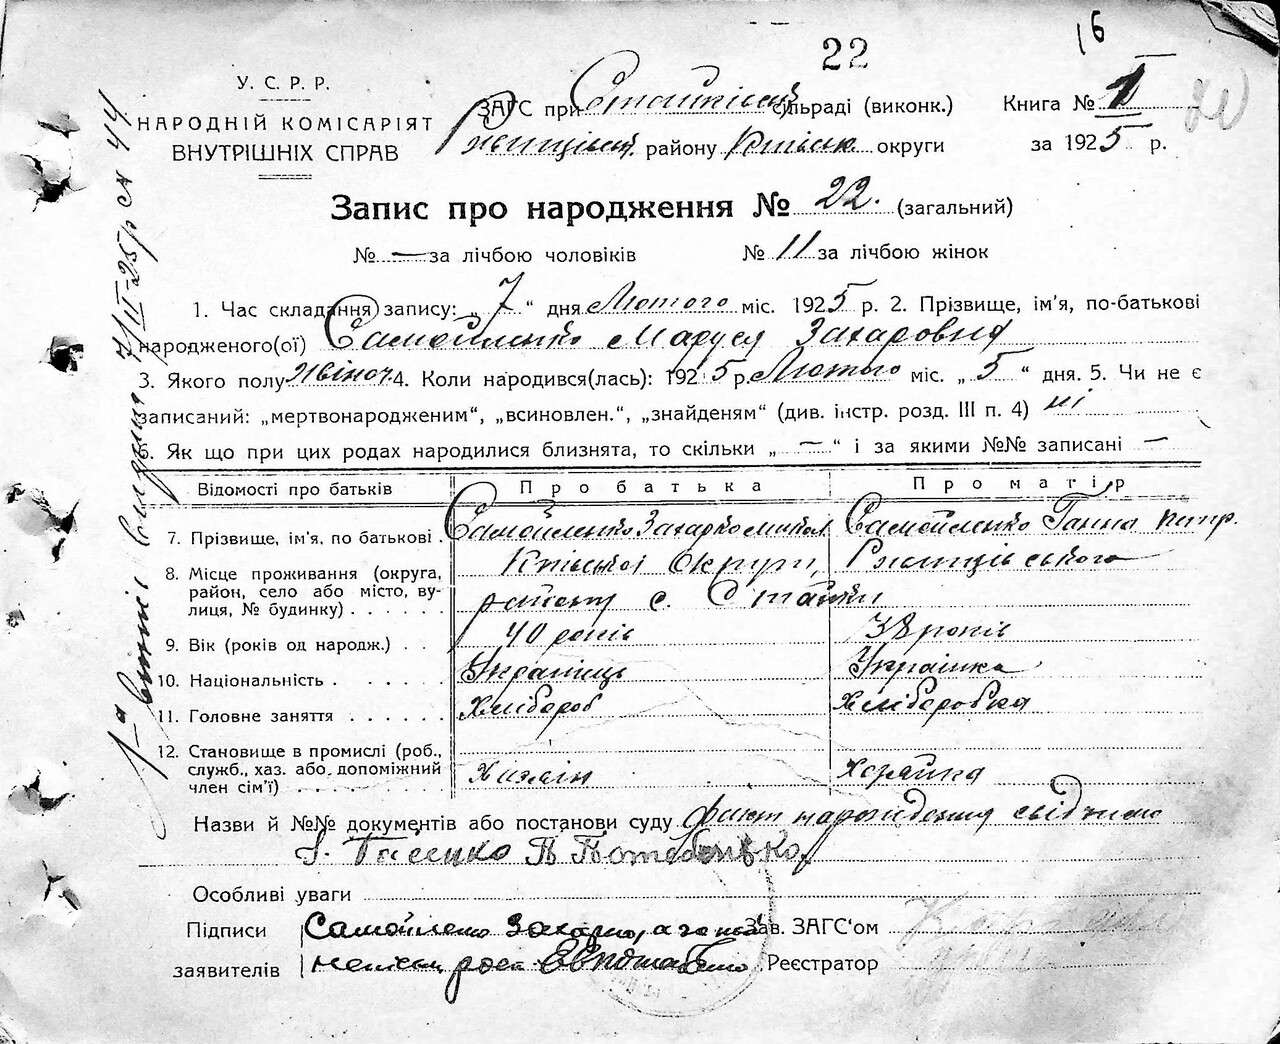 22
16
У. С. Р. Р.
НАРОДНІЙ КОМІСАРІЯТ
ВНУТРІШНІХ СПРАВ
ЗАГС при Стайківській сільраді (виконк.)
Ржищівськ. району Київськ. округи
Книга № 1
за 1925 р.
Запис про народження № 22. (загальний)
№ — за лічбою чоловіків № 11 за лічбою жінок
1. Час складання запису: „ 7 “ дня Лютого міс. 1925 р. 2. Прізвище, ім'я, по-батькові
народженого(ої) Самойленко Маруся Захаровна
3. Якого полу жіноч. 4. Коли народився(лась): 1925 р. Лютого міс. „ 5 “ дня. 5. Чи не є
записаний: „мертвонародженим“, „всиновлен.“, „знайденям“ (див. інстр. розд. III п. 4) ні
6. Як що при цих родах народилися близнята, то скільки „ — “ і за якими №№ записані —
Відомості про батьків Про батька Про матір
7. Прізвище, ім'я, по батькові . Самойленко Захарко Самойленко Ганна Петр.
8. Місце проживання (округа, район, село або місто, вулиця, № будинку) Київської Округи, Ржищівського
району с. Стайки
9. Вік (років од народж.) . . 40 років 38 років
10. Національність . . . . . Українець Українка
11. Головне заняття . . . . . . Хлібороб Хліборобка
12. Становище в промислі (роб.,
служб., хаз. або допоміжний
член сім'ї) Хазяїн Хазяйка
Назви й №№ документів або постанови суду факт народження свідчили
Особливі уваги
Підписи Самойленко Захарко, а за Зав. ЗАГС'ом
заявителів Реєстратор